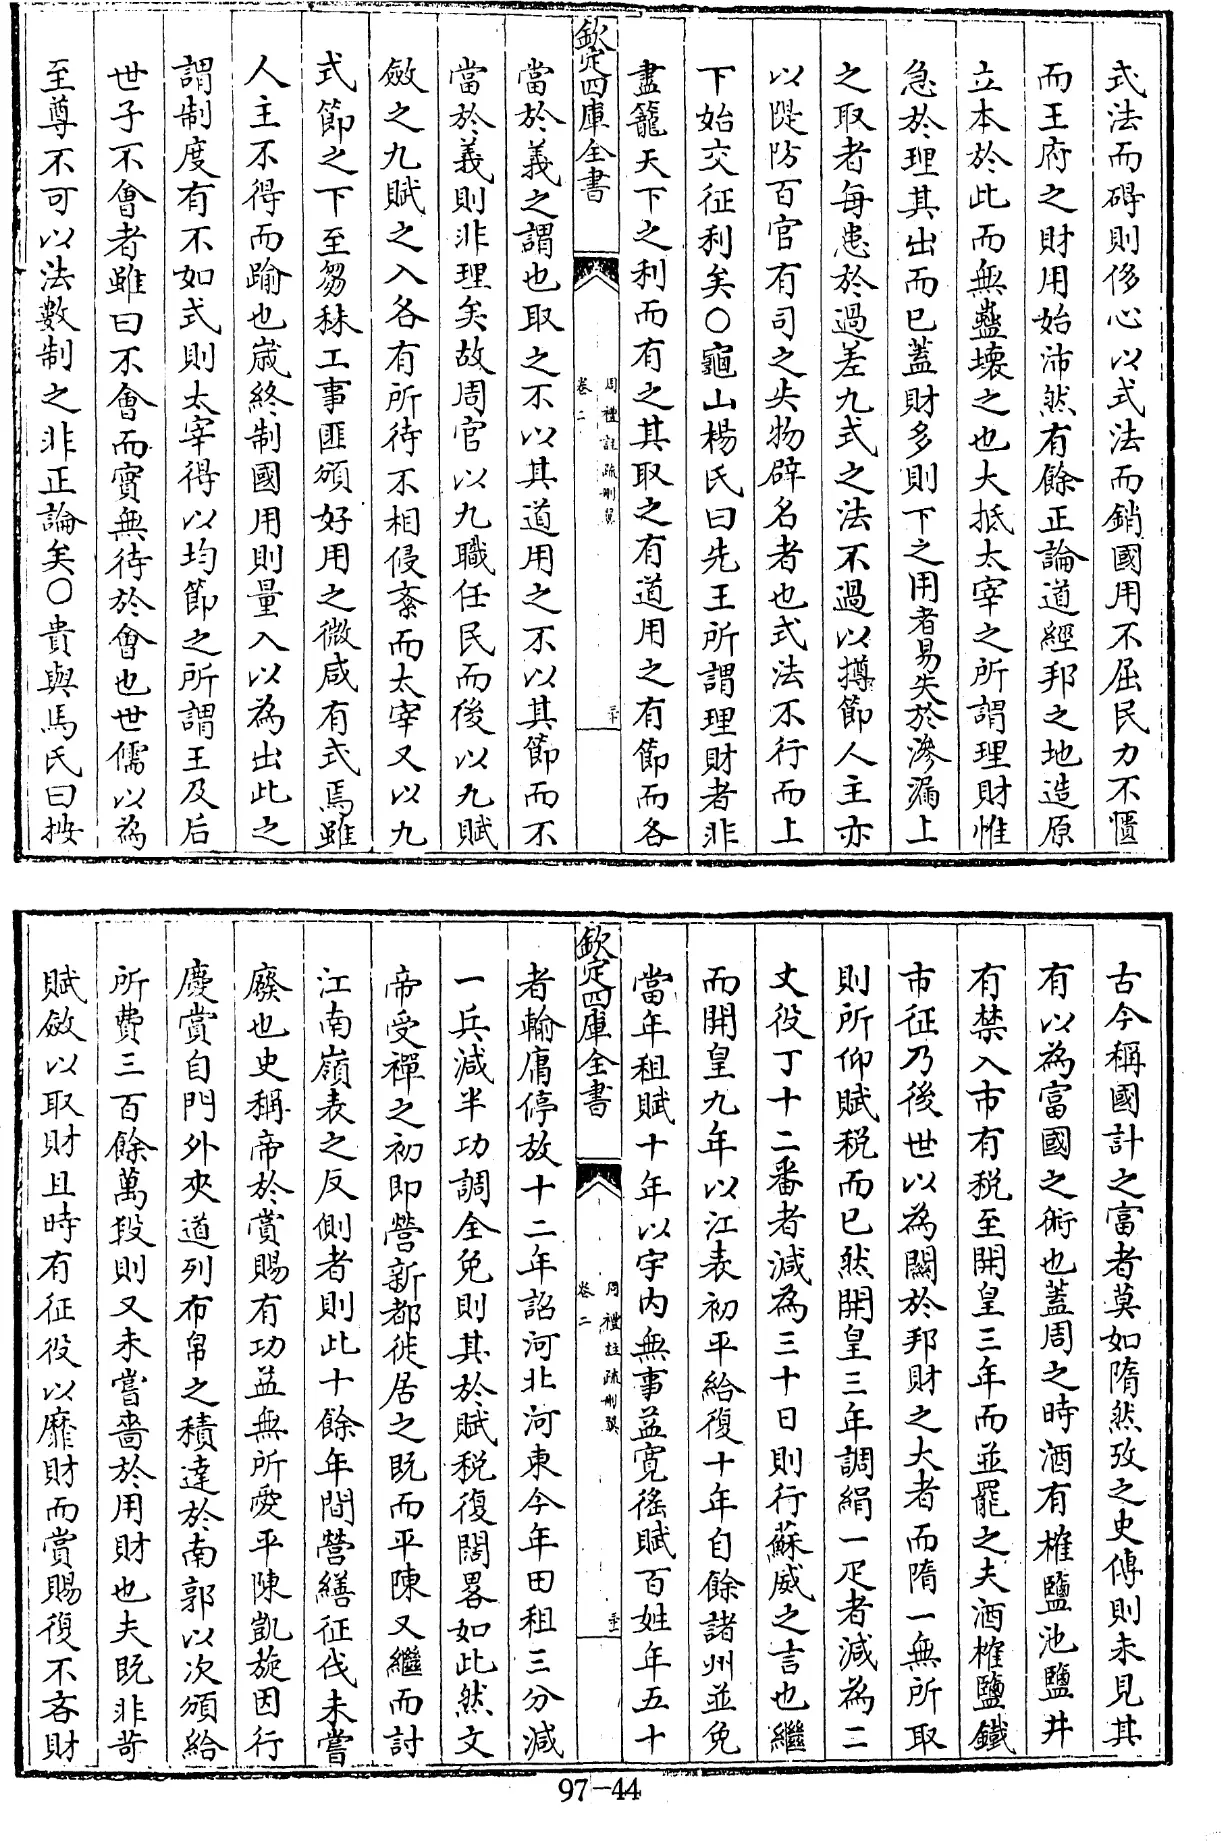 式法而碍則侈心以式法而銷國用不屈民力不慣
而王府之財用始沛然有餘正論道經邦之地造原
立本於此而無蠱壞之也大抵太宰之所謂理財惟
急於理其出而已蓋財多則下之用者易失於滲漏上
之取者每患於過差九式之法不過以撙節人主亦
以隄防百官有司之失物辟名者也式法不行而上
下始交征利矣○龜山楊氏曰先王所謂理財者非
盡籠天下之利而有之其取之有道用之有節而各
欽定四庫全書
周禮註疏刪翼
卷二
三十
當於義之謂也取之不以其道用之不以其節而不
當於義則非理矣故周官以九職任民而後以九賦
斂之九賦之入各有所待不相侵紊而太宰又以九
式節之下至芻秣工事匪頒好用之微咸有式焉雖
人主不得而踰也歲終制國用則量入以為出此之
謂制度有不如式則太宰得以均節之所謂王及后
世子不會者雖曰不會而實無待於會也世儒以為
至尊不可以法數制之非正論矣○貴與馬氏曰按
古今稱國計之富者莫如隋然攷之史傳則未見其
有以為富國之術也蓋周之時酒有榷鹽池鹽井
有禁入市有税至開皇三年而並罷之夫酒榷鹽鐵
市征乃後世以為關於邦財之大者而隋一無所取
則所仰賦税而已然開皇三年調絹一疋者減為二
丈役丁十二番者減為三十日則行蘇威之言也繼
而開皇九年以江表初平給復十年自餘諸州並免
當年租賦十年以宇内無事益寛徭賦百姓年五十
欽定四庫全書
周禮註疏刪翼
卷二
三十一
者輸庸停放十二年詔河北河東今年田租三分減
一兵減半功調全免則其於賦税復闊畧如此然文
帝受禪之初即營新都徙居之既而平陳又繼而討
江南嶺表之反側者則此十餘年間營繕征伐未嘗
廢也史稱帝於賞賜有功益無所愛平陳凱旋因行
慶賞自門外夾道列布帛之積達於南郭以次頒給
所費三百餘萬段則又未嘗嗇於用財也夫既非苛
賦斂以取財且時有征役以靡財而賞賜復不吝財
97-44